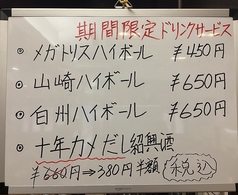 期間限定ドリンクサービス
⦿ メガトリスハイボール ¥450円
⦿ 山崎ハイボール ¥650円
⦿ 白州ハイボール ¥650円
⦿ 十年カメだし紹興酒
¥660円⇒380円 半額 税込